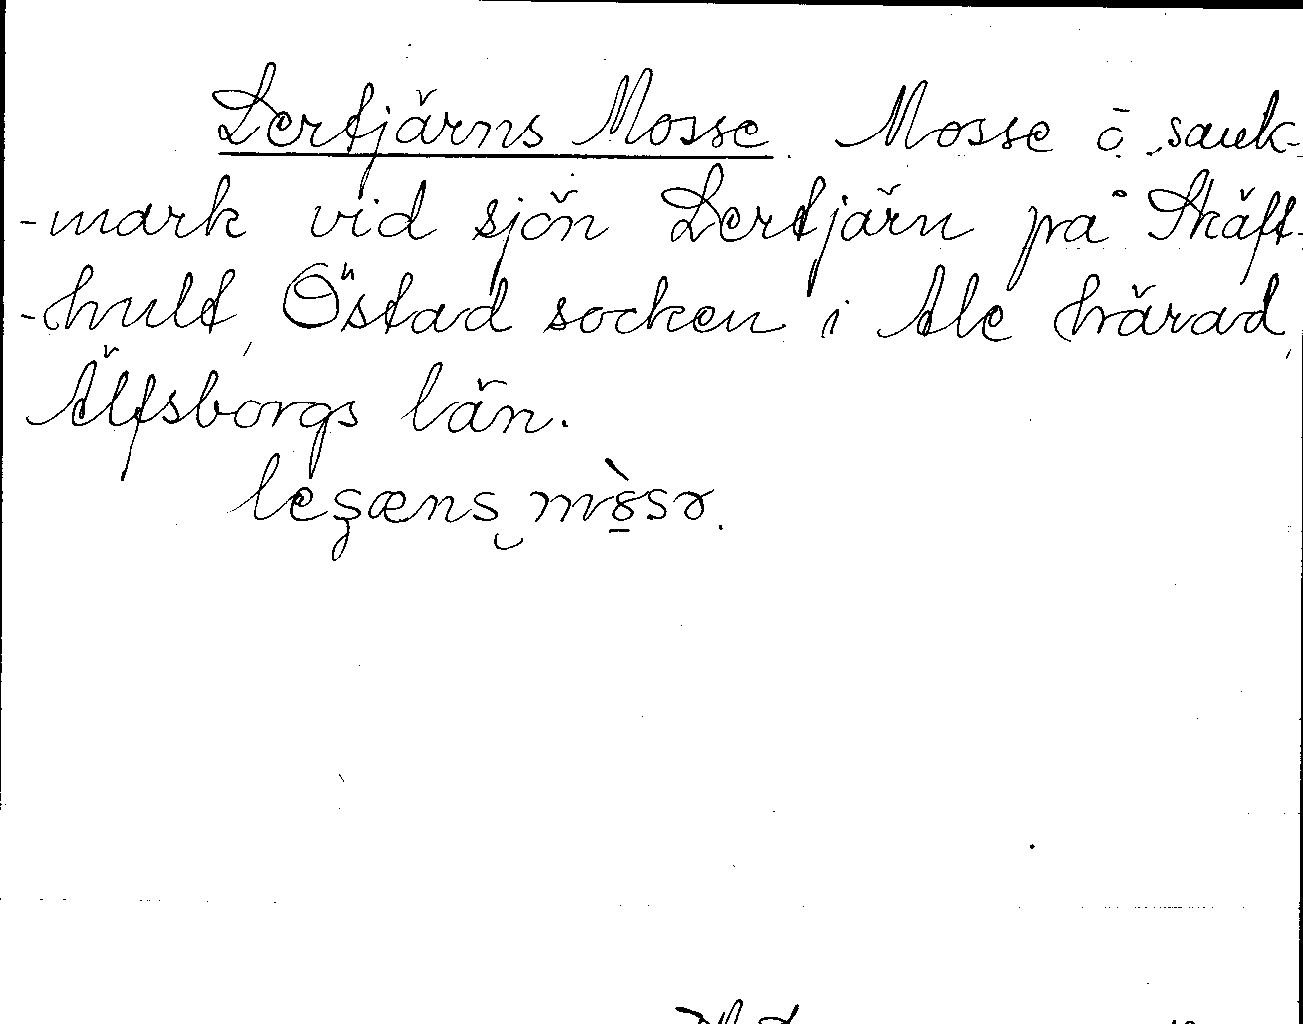 Lertjärns Mosse. Mosse o. sank-
-mark vid sjön Lertjärn på Skäft-
-hult, Östad socken i Ale härad,
Älfsborgs län.